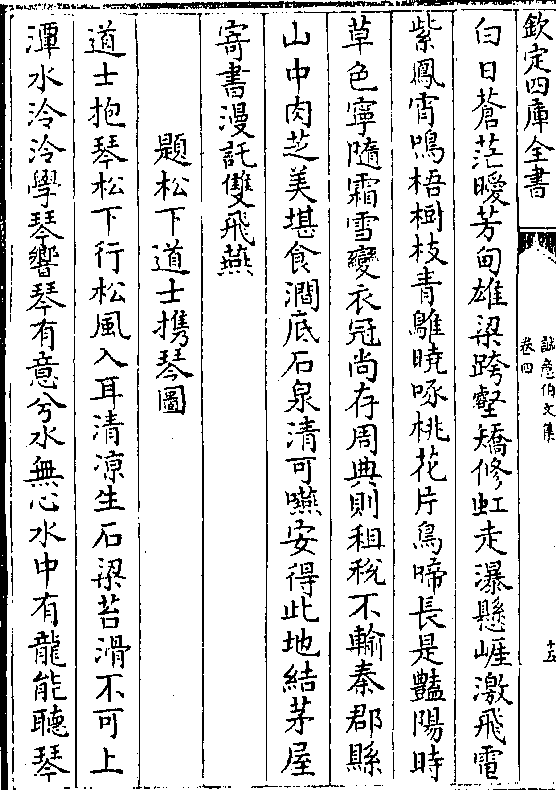 欽定四庫全書
誠意伯文集
卷四
十五
白日蒼茫曖芳甸雄梁跨壑矯修虹走瀑懸崖激飛電
紫鳳宵鳴梧樹枝青鸞曉啄桃花片鳥啼長是豔陽時
草色寧隨霜雪變衣冠尚存周典則租稅不輸秦郡縣
山中肉芝美堪食澗底石泉清可嚥安得此地結茅屋
寄書漫託雙飛燕
題松下道士攜琴圖
道士抱琴松下行松風入耳清涼生石梁苔滑不可上
潭水泠泠學琴響琴有意兮水無心水中有龍能聽琴